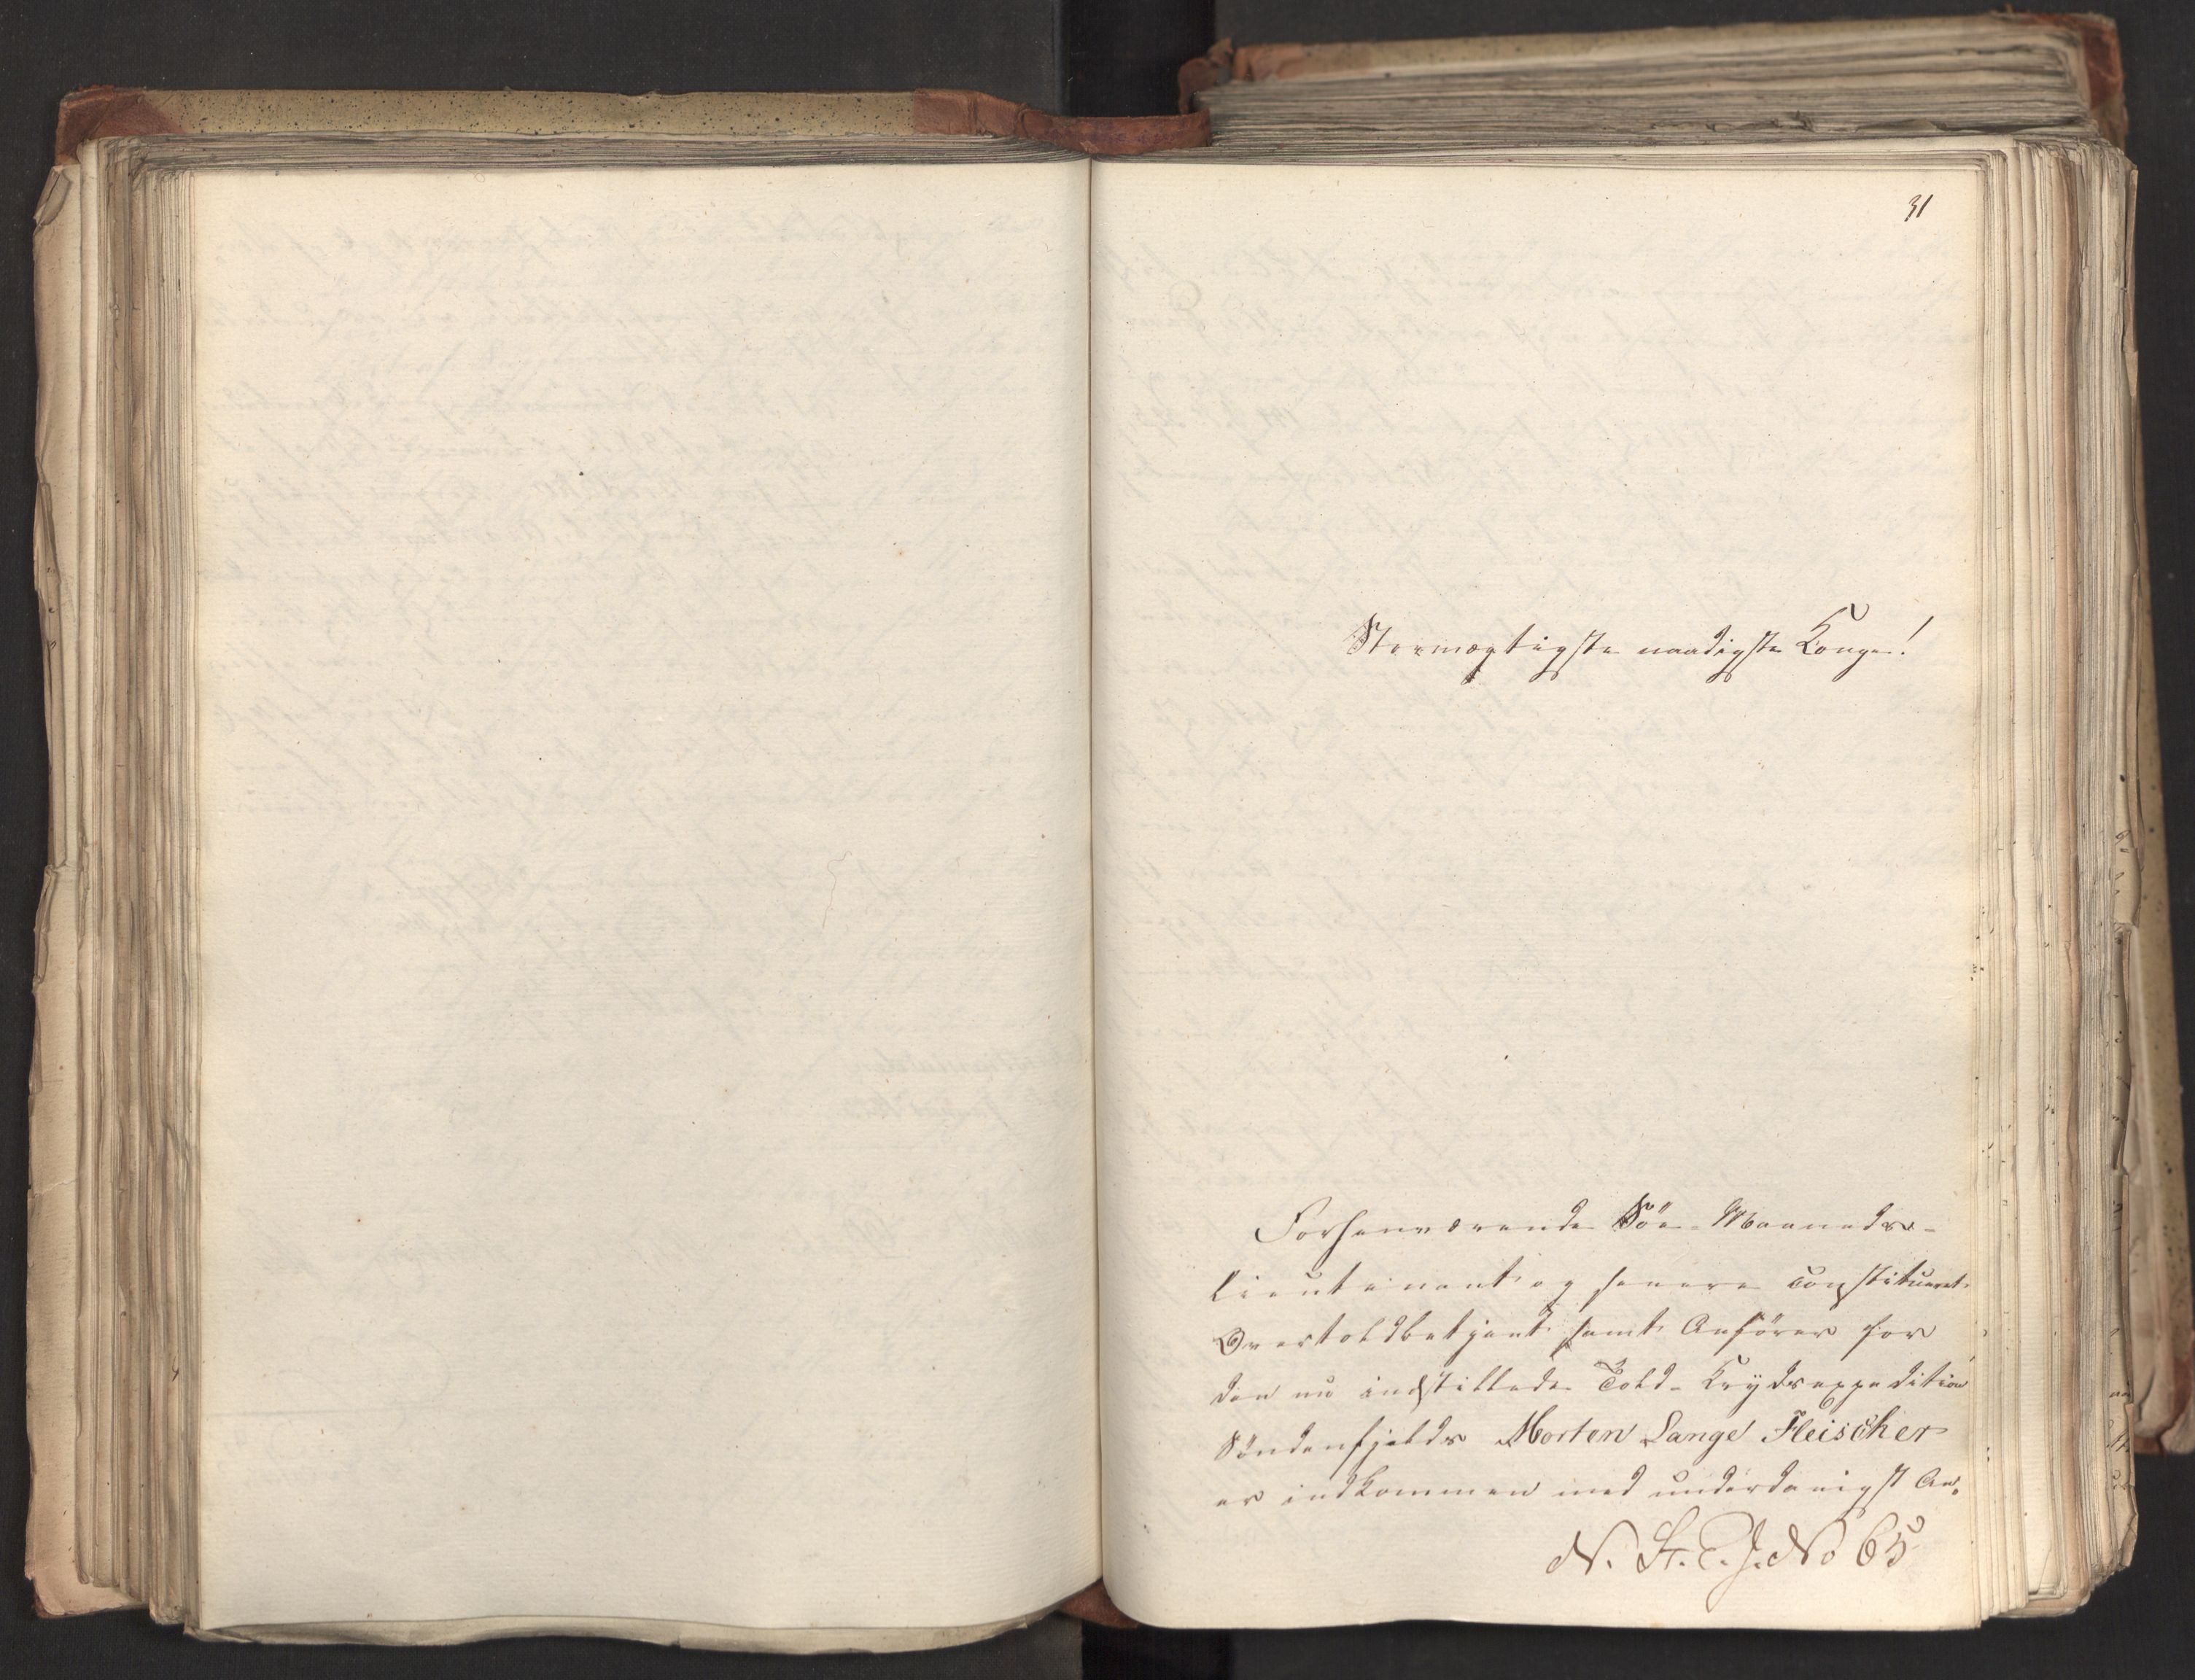 31
Stormægtigste naadigste Konge!
Forhenværende Söe-Maaneds-
Lieutenant og senere constitueret
Overtoldbetjent samt Anförer for
den nu indstillede Told-Krydsexpedition
Söndenfjelds Morten Lange Fleischer
er indkommen med underdanigst An-
N. St. C. J. No 65